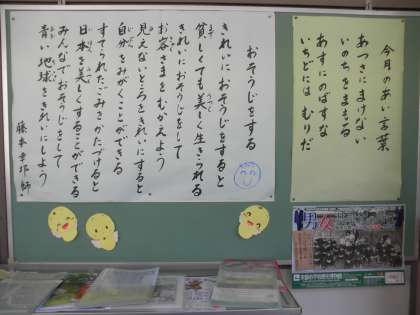 おそうじをする
きれいにおそうじをすると
貧しくても美しく生きられる
きれいにおそうじをして
お客さまをむかえよう
見えないところをきれいにすると
自分をみがくことができる
すてられたごみをかたづけると
日本を美しくすることができる
みんなでおそうじをして
青い地球をきれいにしよう
藤本幸邦 師
今月のあい言葉
あつさにまけない
いのちをまもる
あすにのばすな
いちどには むりだ
男
女